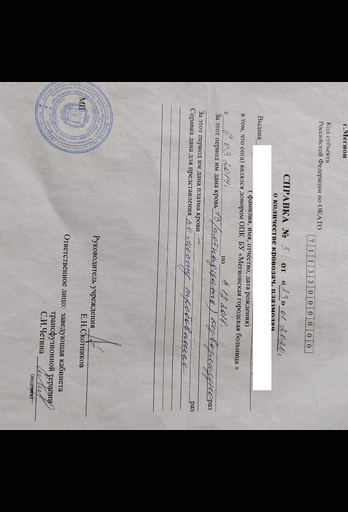 г.Мегион
Код субъекта
Российской Федерации по ОКАТО 7 1 1 3 3 0 0 0 0 0 0
СПРАВКА № 3 от «23» 01 2020г.
о количестве кроводач, плазмодач
Выдана
( фамилия, имя, отчество, дата рождения)
в том, что он(а) являлся донором ОПК БУ «Мегионская городская больница»
с 6.03.2011г. по 4.12.2019г.
За этот период им дана кровь 13 (тринадцать) раз
За этот период им дана плазма крови — раз
Справка дана для представления по месту требования
Руководитель учреждения
Е.Н.Скотников
Ответственное лицо: заведующая кабинета
трансфузионной терапии
С.И.Четина
(подпись)
МП